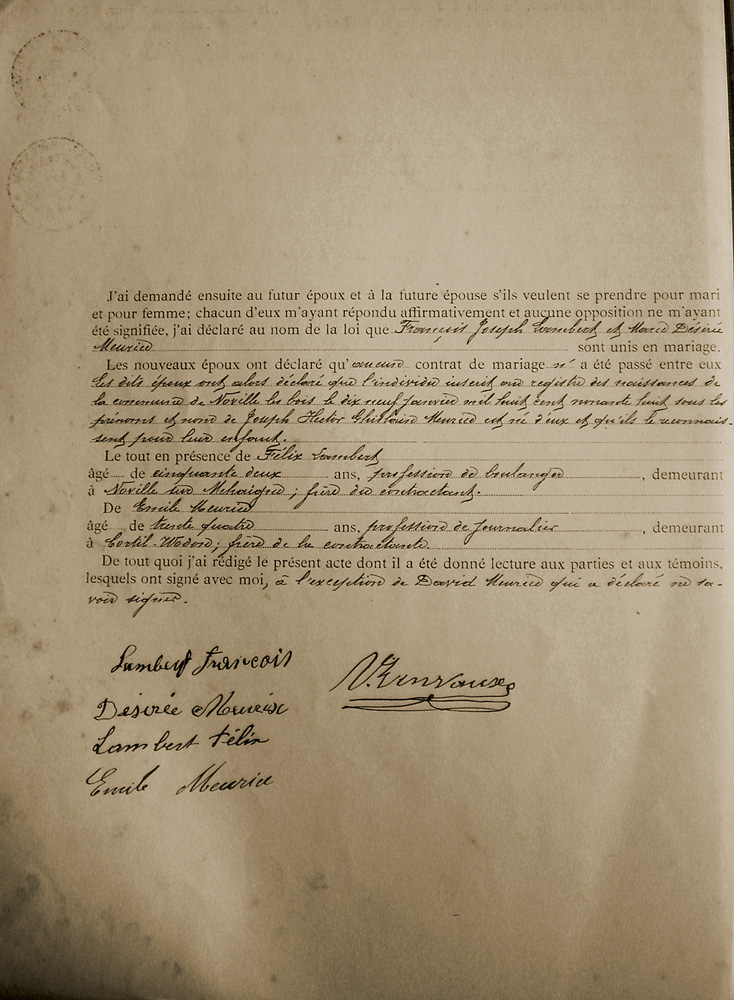 J'ai demandé ensuite au futur époux et à la future épouse s'ils veulent se prendre pour mari
et pour femme; chacun d'eux m'ayant répondu affirmativement et aucune opposition ne m'ayant
été signifiée, j'ai déclaré au nom de la loi que François Joseph Lambert et Marie Désirée
Meurice sont unis en mariage.
Les nouveaux époux ont déclaré qu'aucun contrat de mariage n' a été passé entre eux
Les dits époux ont alors déclaré que l'individu inscrit au registre des naissances de
la commune de Noville les bois le dix neuf Janvier mil huit cent nonante huit sous les
prénoms et nom de Joseph Hector Ghislain Meurice est né d'eux et qu'ils le reconnais-
sent pour leur enfant.
Le tout en présence de Félix Lambert
âgé de cinquante deux ans, profession de boulanger, demeurant
à Noville sur Mehaigne; frère du contractant.
De Emile Meurice
âgé de trente quatre ans, profession de Journalier, demeurant
à Cortil-Wodon; frère de la contractante.
De tout quoi j'ai rédigé le présent acte dont il a été donné lecture aux parties et aux témoins,
lesquels ont signé avec moi, à l'exception de David Meurice qui a déclaré ne sa-
voir signer.
Lambert françois
Désirée Meurice
Lambert Félix
Emile Meurice